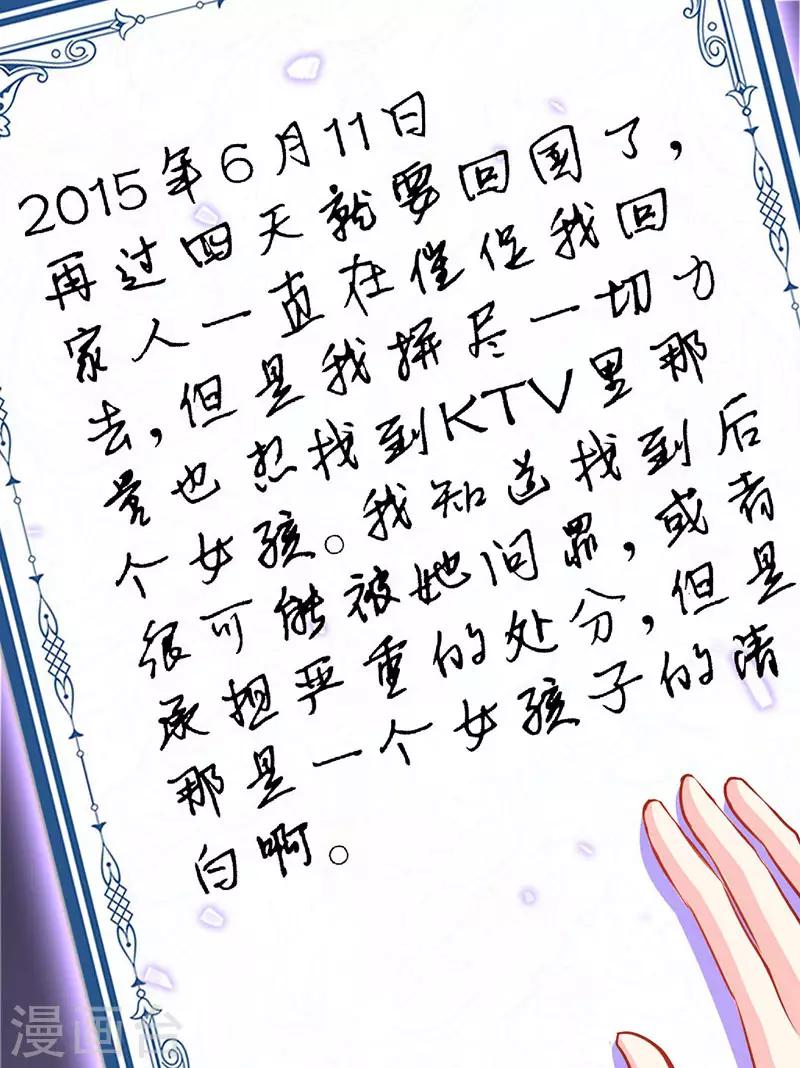 2015年6月11日
再过四天就要回国了，
家人一直在催促我回
去，但是我拼尽一切力
量也想找到KTV里那
个女孩。我知道找到后
很可能被她问罪，或者
承担严重的处分，但是
那是一个女孩子的清
白啊。
漫画台